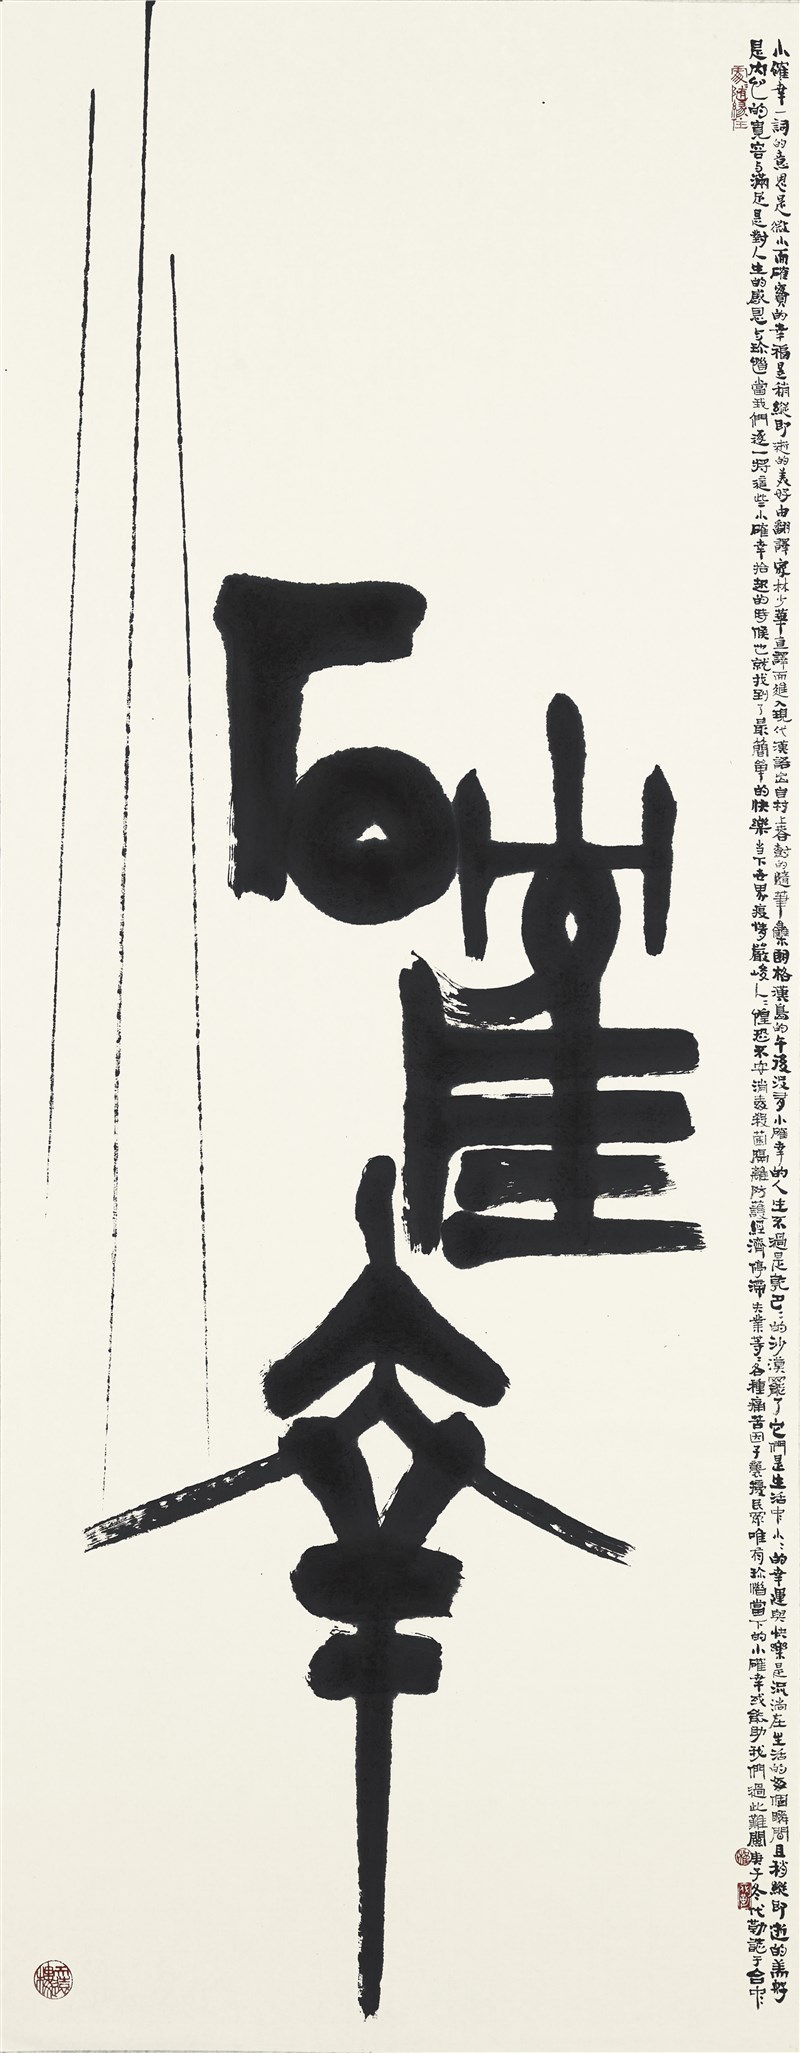 小確幸
小確幸一詞的意思是微小而確實的幸福是稍縱即逝的美好由翻譯家林少華直譯而進入現代漢語出自村上春樹的隨筆集朗格漢島的午後沒有小確幸的人生不過是乾巴〻的沙漠罷了它們是生活中小〻的幸運與快樂是流淌在生活的每個瞬間且稍縱即逝的美好
是內心的寬容与滿足是對人生的感恩与珍惜當我們逐一將這些小確幸拾起的時候也就找到了最簡單的快樂當下世界疫情嚴峻人〻惶恐不安消毒殺菌隔離防護經濟停滯失業等〻各種痛苦因子襲擾民眾唯有珍惜當下的小確幸或能助我們過此難關庚子冬代勒誌于台中